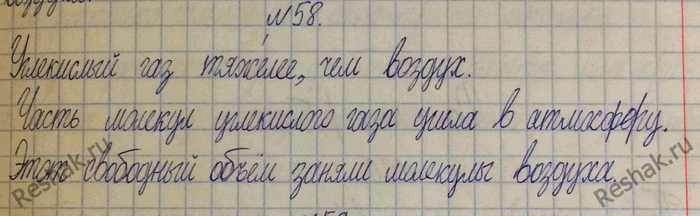 №58.
Углекислый газ тяжелее, чем воздух.
Часть молекул углекислого газа ушла в атмосферу.
Этот свободный объём заняли молекулы воздуха.
Reshak.ru
Reshak.ru